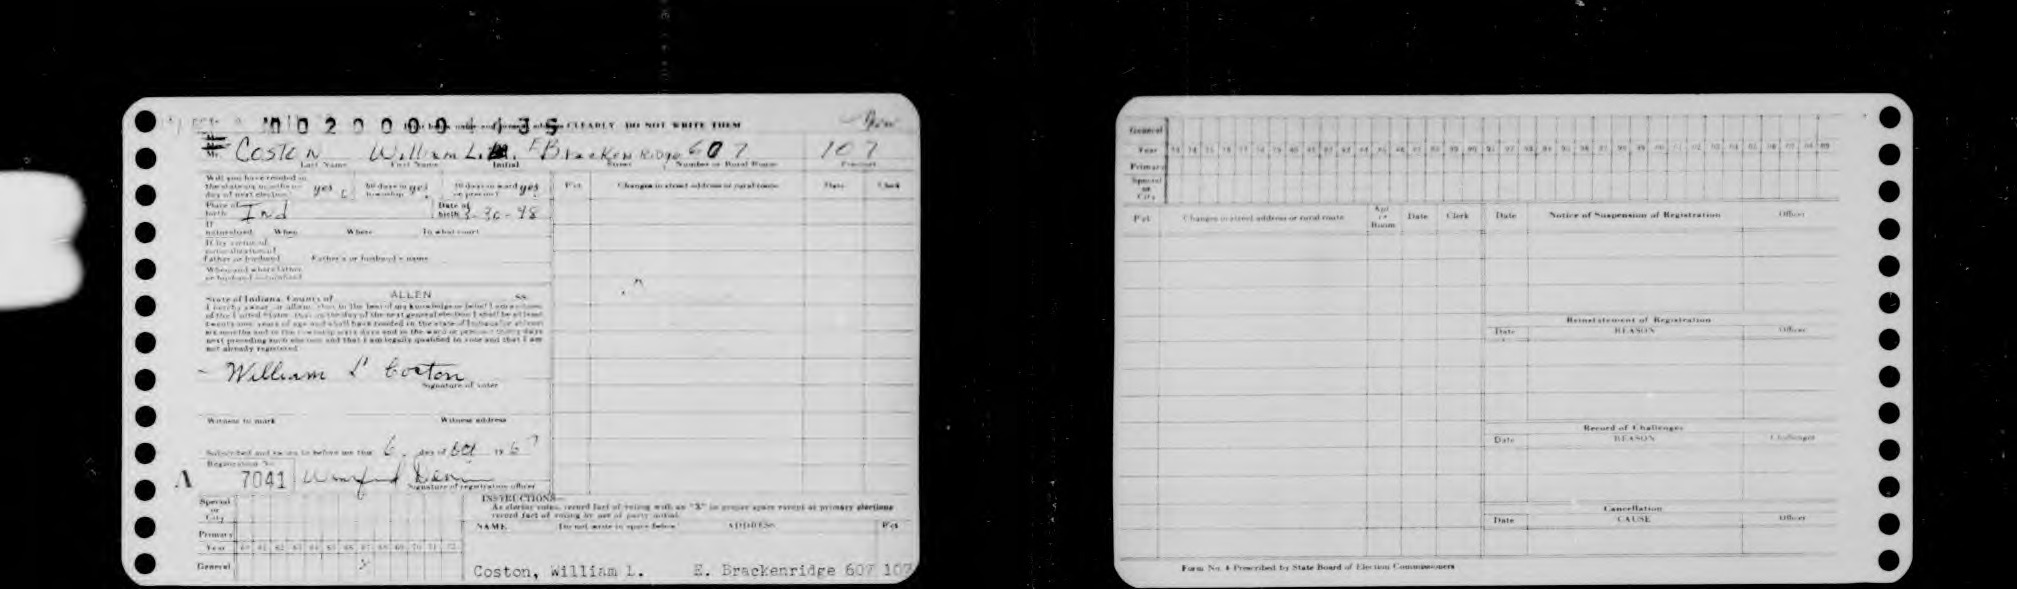 0020000 1435
CLEARLY DO NOT WRITE THEM
Mr. Coston William L. E Bracken Ridge 607 107
Last Name First Name Initial Street Number or Rural Route Precinct
Will you have resided in
the state six months on
day of next election? yes 60 days in township yes 30 days in ward or precinct? yes
Place of birth Ind Date of birth 3-30-98
If naturalized When Where In what court
If by virtue of
naturalization of
Father or husband Father's or husband's name
When and where father
or husband naturalized
State of Indiana, County of ALLEN ss.
I hereby swear or affirm that to the best of my knowledge or belief I am a citizen
of the United States, that on the day of the next general election I shall be at least
twenty-one years of age and shall have resided in the state of Indiana for at least
six months and in the township sixty days and in the ward or precinct thirty days
next preceding such election and that I am legally qualified to vote and that I am
not already registered
William L Coston
Signature of voter
Witness to mark Witness address
Subscribed and sworn to before me this 6 day of Oct 1967
Registration No.
A 7041
Signature of registration officer
Special or City
Primary
Year 61 62 63 64 65 66 67 68 69 70 71 72
General X
Pct. Changes in street address or rural route Date Clerk
INSTRUCTIONS—
As elector votes, record fact of voting with an "X" in proper space except at primary elections
record fact of voting by use of party initial.
NAME (Do not write in space below) ADDRESS Pct
Coston, William L. E. Brackenridge 607 107
General
Year
Primary
Special or City
Pct Changes in street address or rural route Apt or Room Date Clerk
Date Notice of Suspension of Registration Officer
Reinstatement of Registration
Date REASON Officer
Record of Challenges
Date REASON Challenger
Cancellation
Date CAUSE Officer
Form No. 4 Prescribed by State Board of Election Commissioners